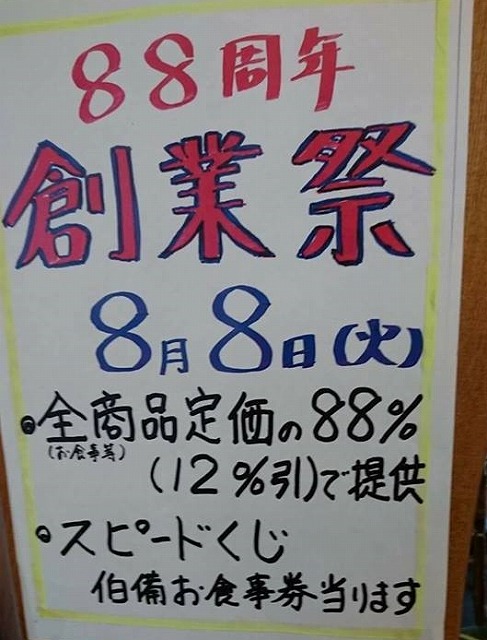 88周年
創業祭
8月8日(火)
・全商品定価の88%
(お食事等)
(12%引)で提供
・スピードくじ
伯備お食事券当ります